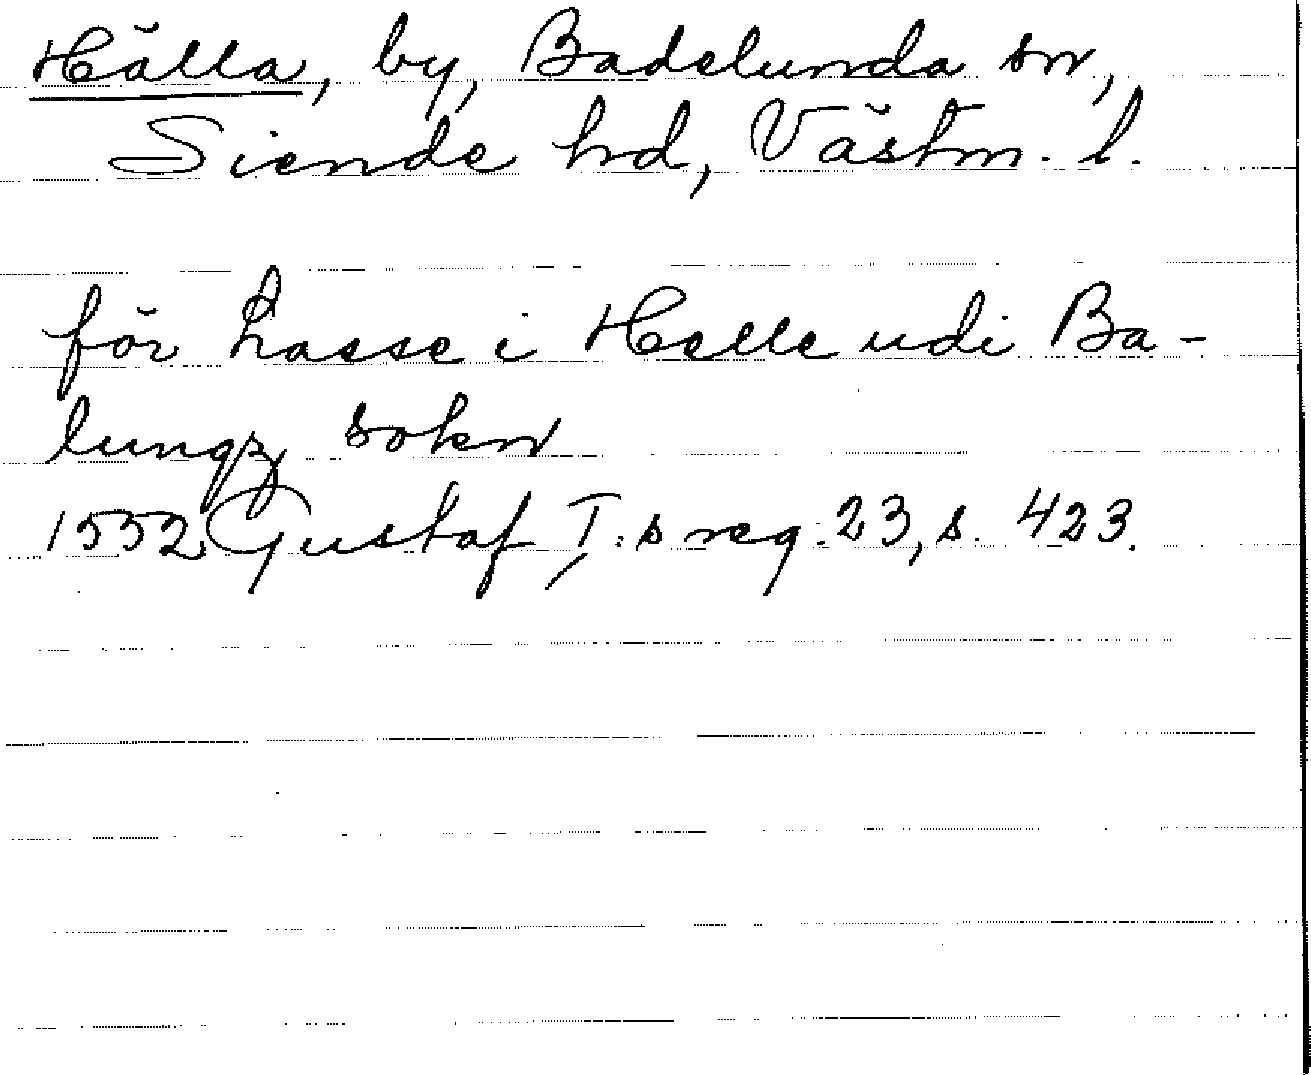 Hälla, by, Badelunda sn,
Siende hd, Västm. l.
för Lasse i Helle udi Ba-
lungz sokn
1552 Gustaf I:s reg. 23, s. 423.